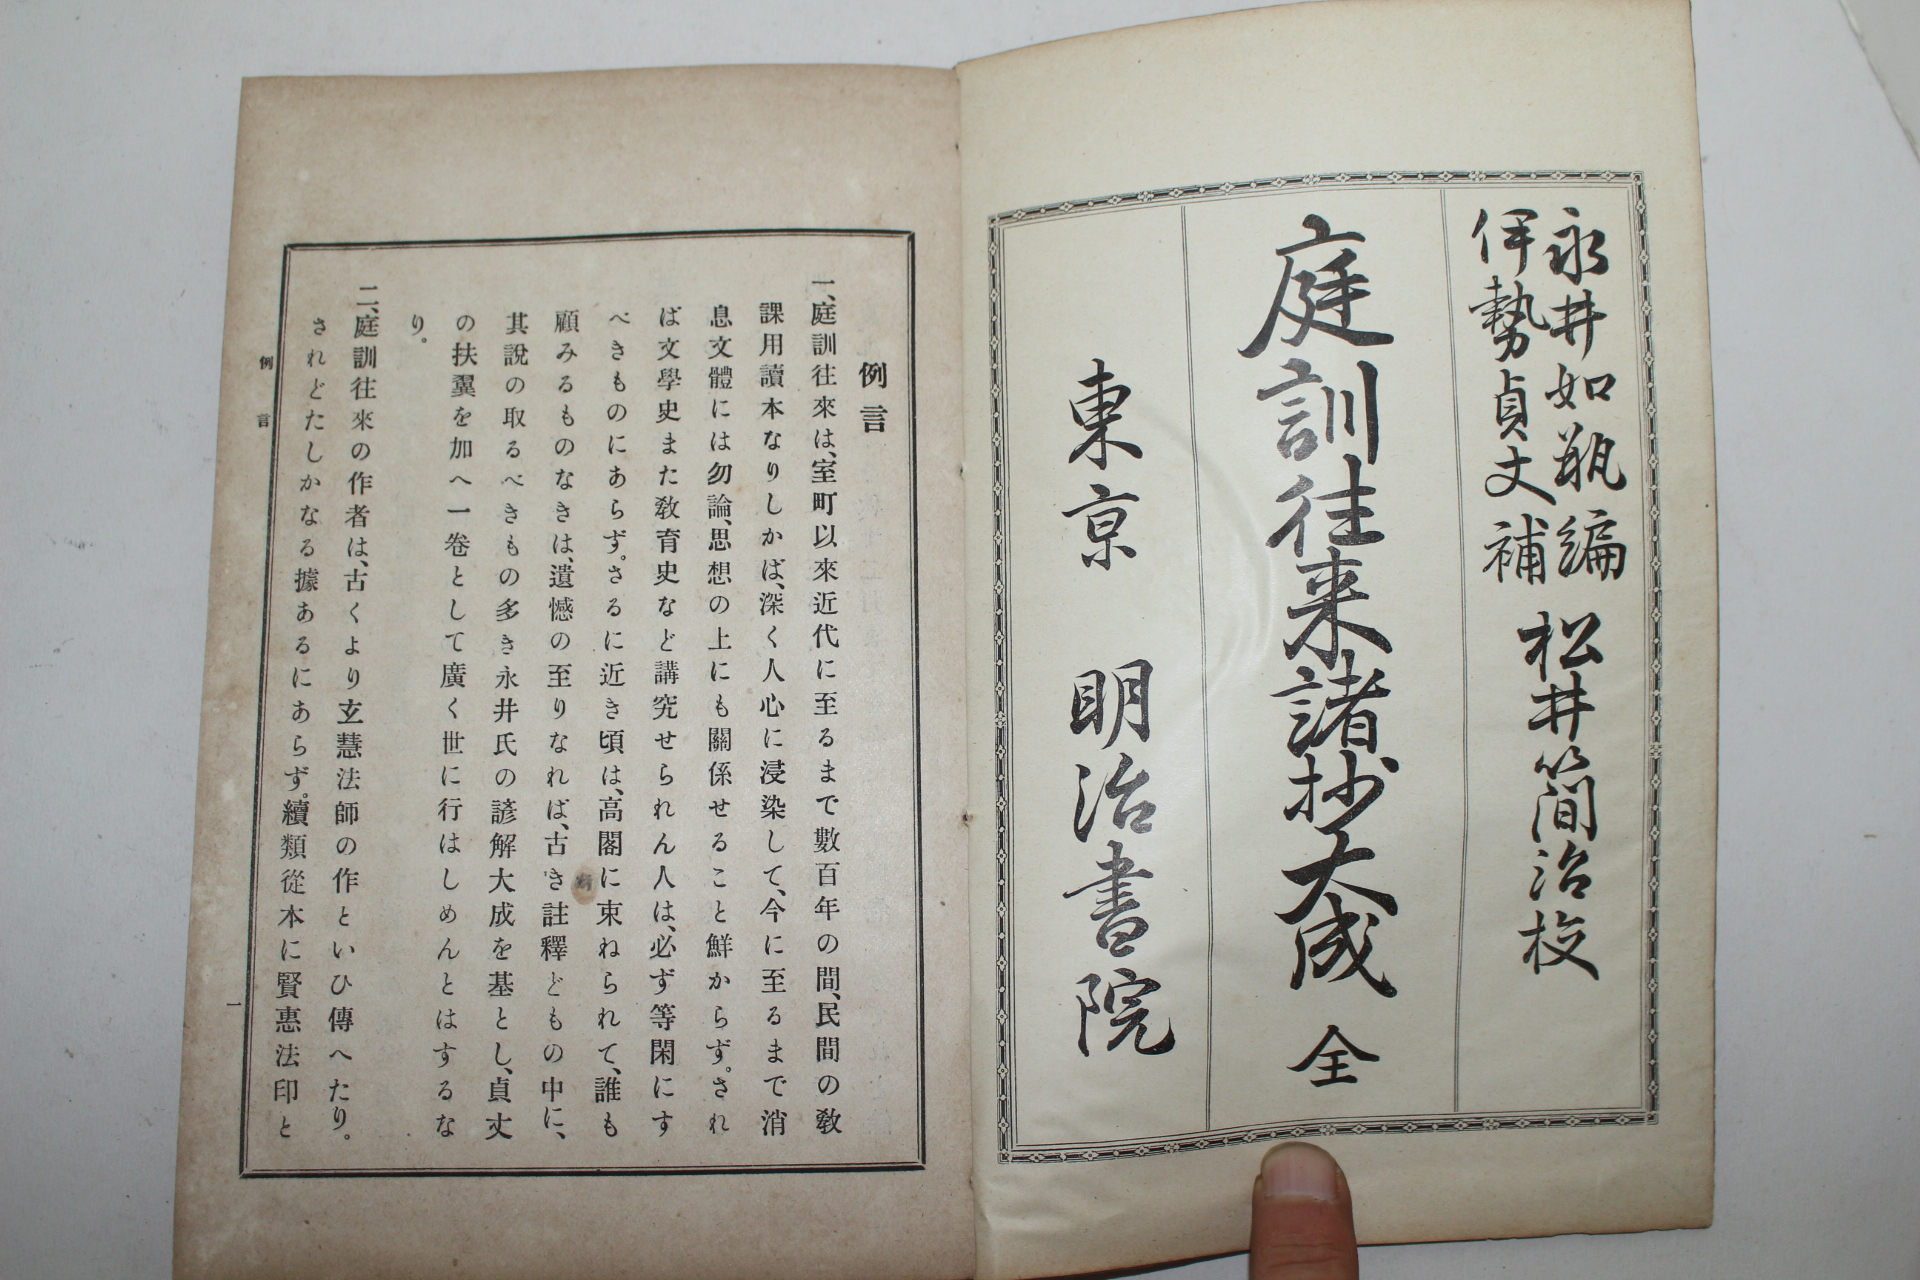 永井如瓶編
伊勢貞丈補
松井簡治校
庭訓往来諸抄大成 全
東京 明治書院
例言
一、庭訓往來は、室町以來近代に至るまで數百年の間、民間の敎
課用讀本なりしかば、深く人心に浸染して、今に至るまで消
息文體には勿論、思想の上にも關係せること鮮からず。され
ば文學史また敎育史など講究せられん人は、必ず等閑にす
べきものにあらず。さるに近き頃は、高閣に束ねられて、誰も
顧みるものなきは、遺憾の至りなれば、古き註釋どもの中に、
其說の取るべきもの多き永井氏の諺解大成を基とし、貞丈
の扶翼を加へ一卷として廣く世に行はしめんとはするな
り。
二、庭訓往來の作者は、古くより玄慧法師の作といひ傳へたり。
されどたしかなる據あるにあらず。續類從本に賢惠法印と
例言
一